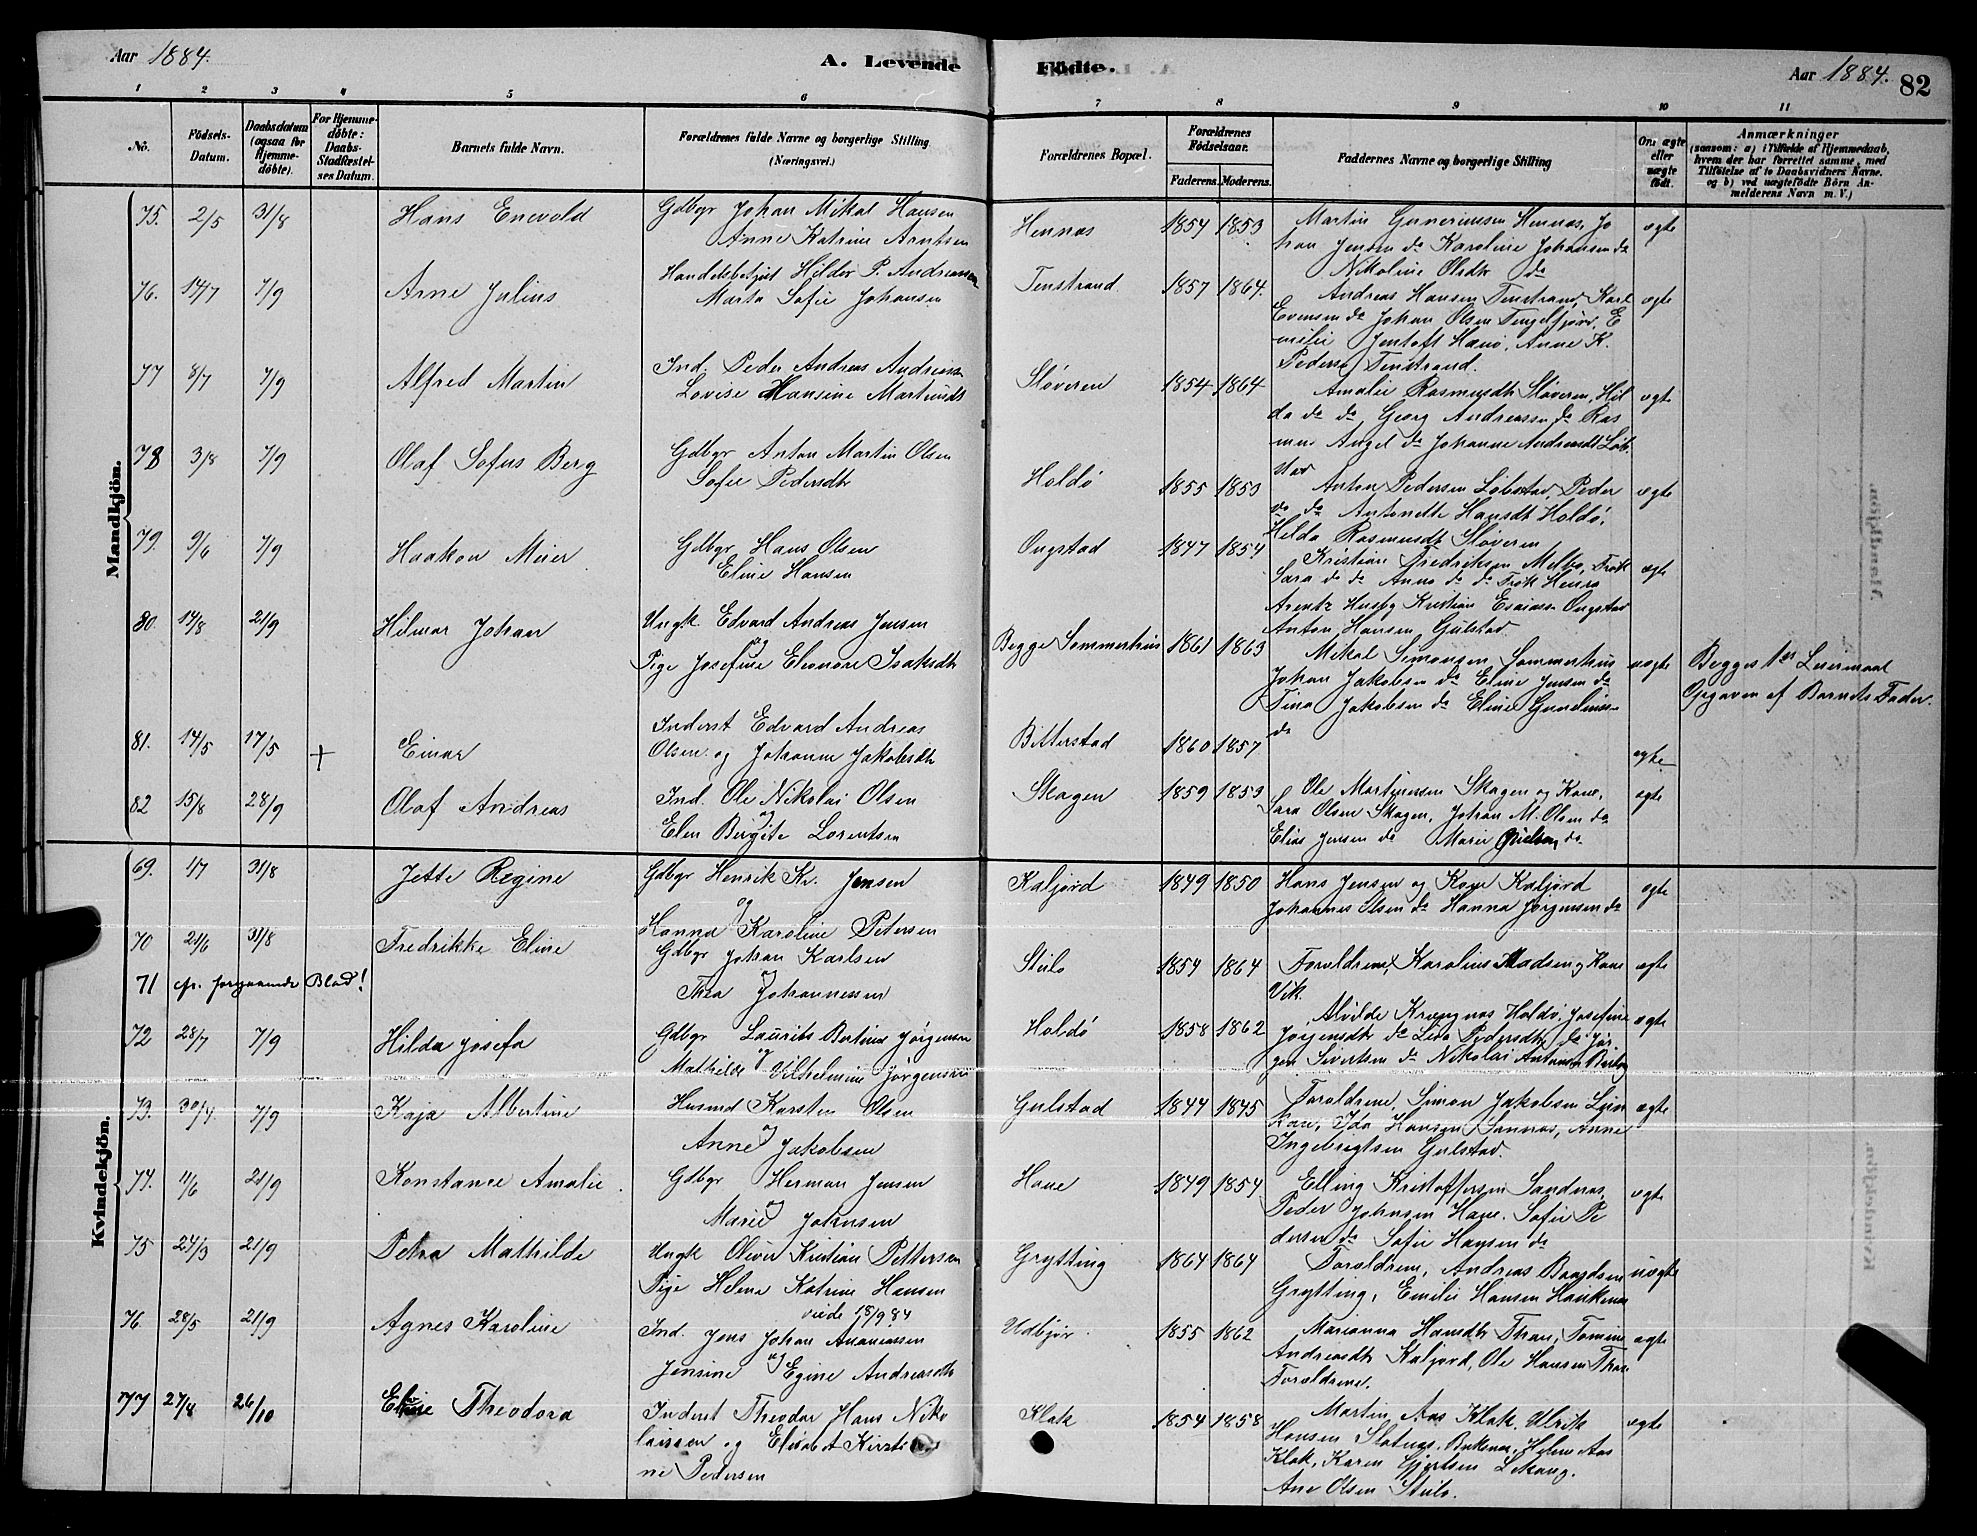 Aar 1884.
A. Levende
Födte.
Aar 1884.
82
1 2 3 4 5 6 7 8 9 10 11
No.
Födsels-
Datum.
Daabsdatum
(ogsaa for
Hjemme-
döbte).
For Hjemme-
döbte:
Daabs-
Stadfæstel-
ses Datum.
Barnets fulde Navn.
Forældrenes fulde Navne og borgerlige Stilling
(Næringsvei.)
Forældrenes Bopæl.
Forældrenes
Födselsaar.
Faderens. Moderens.
Faddernes Navne og borgerlige Stilling
Om ægte
eller
uægte
födt.
Anmærkninger
(saasom: a) i Tilfælde af Hjemmedaab,
hvem der har forrettet samme, med
Tilföielse af to Daabsvidners Navne,
og b) ved uægtefödte Börn An-
melderens Navn m. V.)
Mandkjön.
75. 2/5 31/8 Hans Enevold
Gdbgr Johan Mikal Hansen
Anne Katrine Arntsen
Hennes 1854 1853
Martin Guneriussen Hennes, Jo
han Jensen do Karoline Johansen do
Nikoline Olsdtr do
ægte
76. 14/7 7/9 Arne Julius
Handelsbetjent Hilder P. Andreassen
Marta Sofie Johansen
Tenstrand 1857 1864.
Andreas Hansen Tenstrand, Karl
Evensen do Johan Olsen Tengelfjord, E
milie Jentoft Hanø, Anne K.
Peders Tenstrand.
ægte
77 8/7 7/9 Alfred Martin
Ind. Peder Andreas Andreassen
Lovise Hansine Martinsdtr
Sløveren 1854 1864
Amalie Rasmusdtr Sløveren, Hil
da do do, Georg Andreassen do Ras
mus Angel do Johanne Andreasdtr Løb
stad
ægte
78 3/8 7/9 Olaf Sofus Berg
Gdbgr Anton Martin Olsen
Sofie Pedersdtr
Holdö 1855 1853
Anton Pedersen Løbstad, Peder
do do Antonette Hansdtr Holdö,
Hilda Rasmusdtr Sløveren
ægte
79. 9/6 7/9 Haakon Meier
Gdbgr Hans Olsen
Eline Hansen
Ongstad 1847 1854
Kristian Fredriksen Melbo, Frøk
Sara do do Anna do do Frøk Henra
Arentz Husby Kristian Esaiass Ongstad
Anton Hansen Gulstad
ægte
80. 14/8 21/9 Hilmar Johan
Ungk. Edvard Andreas Jensen
og
Pige Josefine Eleonore Isaksdtr
Begge Sommerhus 1861 1863
Mikal Simonsen Sommerhus
Johan Jakobsen do Eline Jensen do
Tina Jakobsen do Eline
do
uægte
Begges 1ste Leiermaal
Opgaven af Barnets Fader.
81. 14/5 17/5 + Einar
Inderst Edvard Andreas
Olsen og Johanne Jakobsdtr
Bitterstad 1860 1857
ægte
82 15/8 28/9 Olaf Andreas
Ind. Ole Nikolai Olsen
og
Elen Birgite Lorentsen
Skagen 1859 1853
Ole Martinussen Skagen og Kone,
Sara Olsen Skagen, Johan M. Olsen do
Elias Jensen do Marie Nielsen do
ægte
Kvindekjön.
69. 1/7 31/8 Jette Regine
Gdbgr Henrik Kr. Jensen
og
Hanna Karoline Petersen
Kaljord 1849 1850
Hans Jensen og Kone Kaljord
Johannes Olsen do Hanna Jørgensen do
ægte
70 21/6 31/8 Fredrikke Eline
Gdbgr Johan Karlsen
og
Thea Johannessen
Steilo 1854 1864
Forældrene, Karolius Madsen og Kone
Vik.
ægte
71 cfr. foregaaende Blad!
72 28/7 7/9 Hilda Josefa
Gdbgr Laurits Bertines Jørgensen
og
Mathilde Vilhelmine Jørgensen
Holdö 1858 1862
Alvilde Krognæs Holdö, Josefine
Jørgensdtr do Lina Pedersdtr do Jør
gen Sivertsen do Nikolai Antonsen
ægte
73. 30/4 7/9 Kaja Albertine
Husmd Karsten Olsen
og
Anne Jakobsen
Gulstad 1844 1845
Forældrene, Simon Jakobsen
Ida Hansen Sannæs, Anne
Ingebrigtsen Gulstad.
ægte
74. 11/6 21/9 Konstance Amalie
Gdbgr Herman Jensen
og
Marie Johnsen
Hane 1849 1854
Elling Kristoffersen Sandnes,
Peder Johnsen Hane, Sofie Pe
dersen do Sofie Hansen do
ægte
75 24/3 21/9 Petra Mathilde
Ungk Oliver Kristian Pettersen
Pige Helena Katrine Hansen
viede 18/9 84
Grytting 1864 1864
Forældrene, Andreas Baardsen
Grytting, Emilie Hansen Haukenæs
uægte
76 28/5 21/9 Agnes Karoline
Ind. Jens Johan Ananiassen
og
Jensine Egine Andreasdtr
Udbjør. 1855 1862
Marianna Hansdtr Than, Tomine
Andreasdtr Kaljord, Ole Hansen Than
Forældrene.
ægte
77 27/4 26/10 Elise Theodora
Inderst Theodor Hans Niko
laissen og Elisabet Kirsti
ne Pedersen
Klak 1854 1858
Martin Aas Klak, Ulrik
Hansen Slotnæs, Buksnæs, Helene Aas
Klak, Karen Gjertsen Lekang.
Ane Olsen Steilo.
ægte